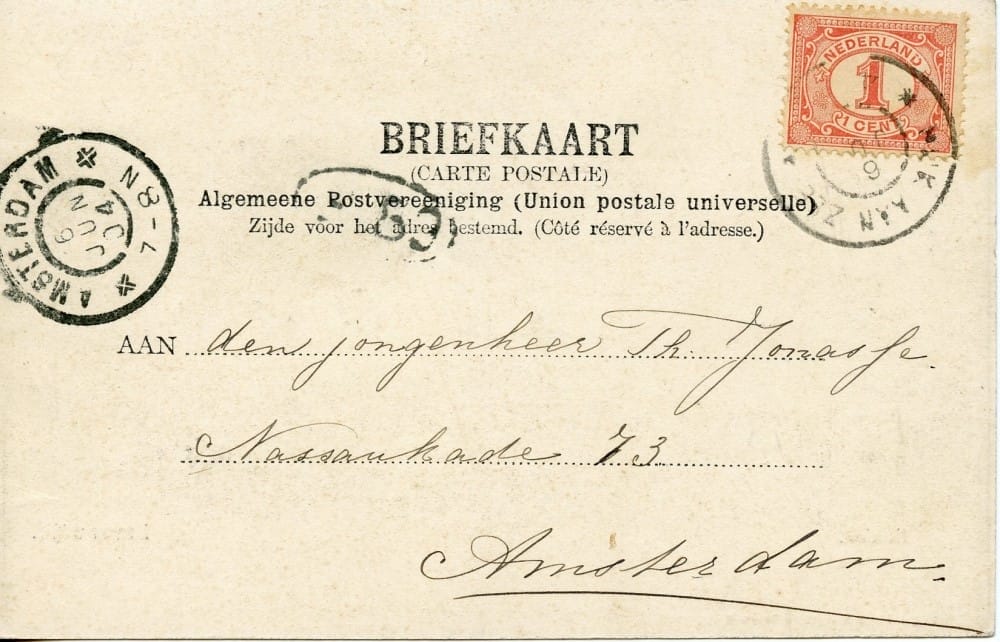 NEDERLAND
1
1 CENT
BRIEFKAART
(CARTE POSTALE)
Algemeene Postvereeniging (Union postale universelle)
Zijde voor het adres bestemd. (Côté réservé à l'adresse.)
AMSTERDAM
7-8N
6 JUN 04
AAN ZEE
AAN den jongenheer Th. Jonasse
Nassaukade 73
Amsterdam.